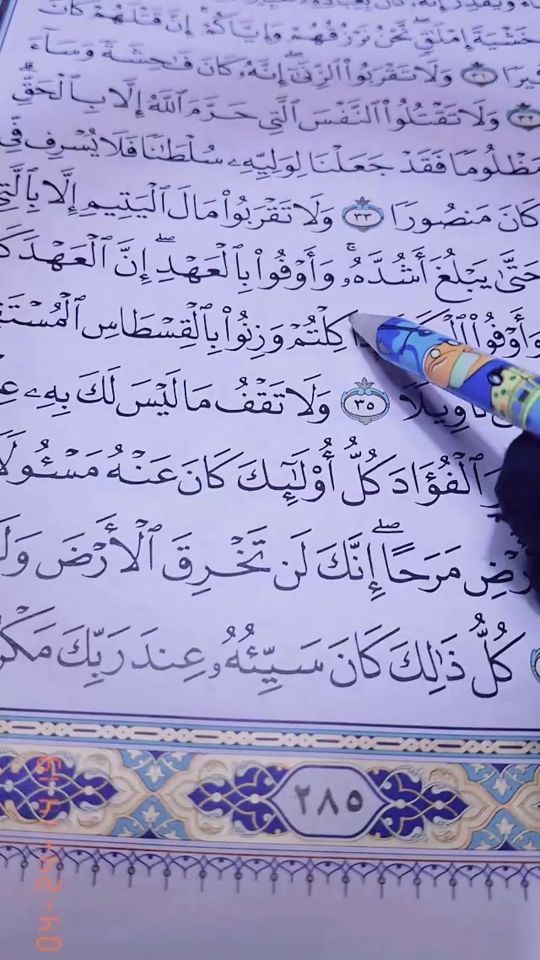 خَشْيَةَ إِمْلَٰقٖۖ نَّحْنُ نَرْزُقُهُمْ وَإِيَّاكُمْۚ إِنَّ قَتْلَهُمْ كَانَ
٣١ وَلَا تَقْرَبُواْ ٱلزِّنَىٰٓۖ إِنَّهُۥ كَانَ فَٰحِشَةٗ وَسَآءَ
٣٢ وَلَا تَقْتُلُواْ ٱلنَّفْسَ ٱلَّتِي حَرَّمَ ٱللَّهُ إِلَّا بِٱلْحَقِّۗ
مَظْلُومٗا فَقَدْ جَعَلْنَا لِوَلِيِّهِۦ سُلْطَٰنٗا فَلَا يُسْرِف فِّي
كَانَ مَنصُورٗا ٣٣ وَلَا تَقْرَبُواْ مَالَ ٱلْيَتِيمِ إِلَّا بِٱلَّتِي
حَتَّىٰ يَبْلُغَ أَشُدَّهُۥۚ وَأَوْفُواْ بِٱلْعَهْدِۖ إِنَّ ٱلْعَهْدَ
وَأَوْفُواْ كِلْتُمْ وَزِنُواْ بِٱلْقِسْطَاسِ
٣٥ وَلَا تَقْفُ مَا لَيْسَ لَكَ بِهِۦ
ٱلْفُؤَادَ كُلُّ أُوْلَٰٓئِكَ كَانَ عَنْهُ مَسْـُٔولٗا
مَرَحًاۖ إِنَّكَ لَن تَخْرِقَ ٱلْأَرْضَ
كُلُّ ذَٰلِكَ كَانَ سَيِّئُهُۥ عِندَ رَبِّكَ
٢٨٥